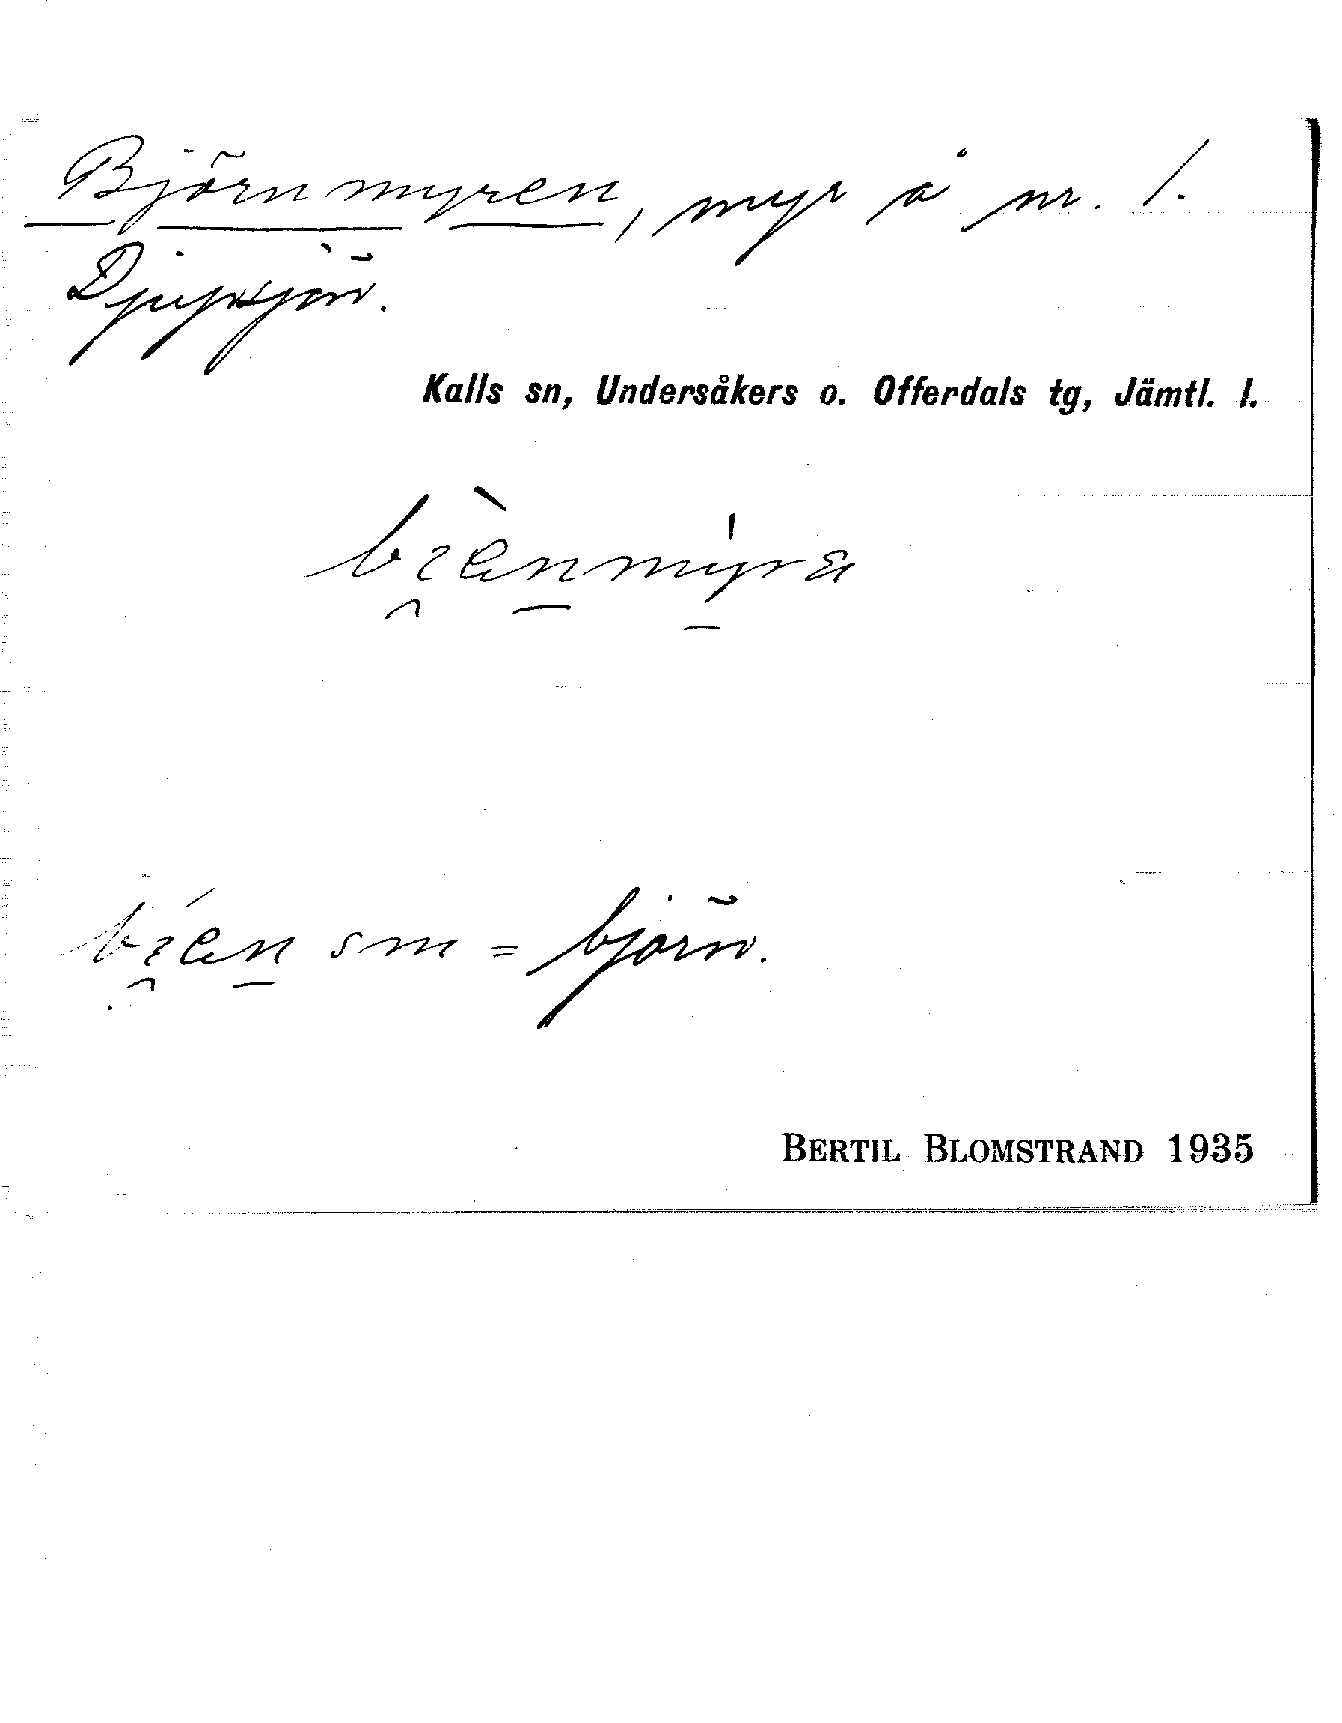 Björnmyren, myr å nr. 1.
Djupsjön.
Kalls sn, Undersåkers o. Offerdals tg, Jämtl. l.
sm = björn.
BERTIL BLOMSTRAND 1935